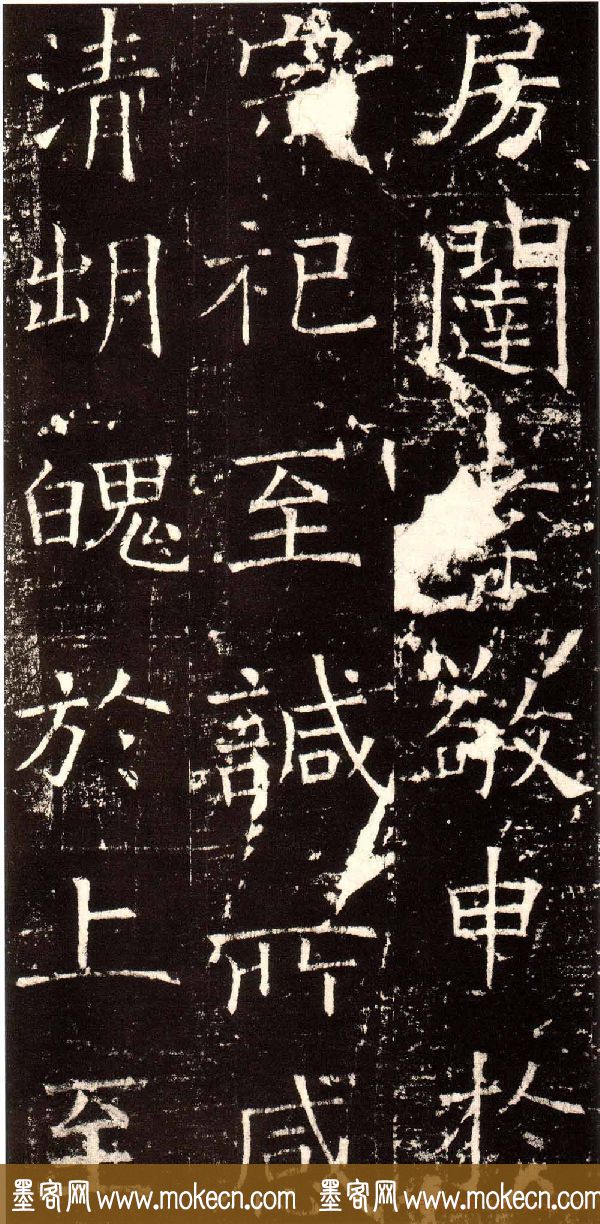 房闥敬申於
宗祀至誠所感
清朏魄於上至
墨客网 www.mokecn.com 墨客网 www.mokecn.com